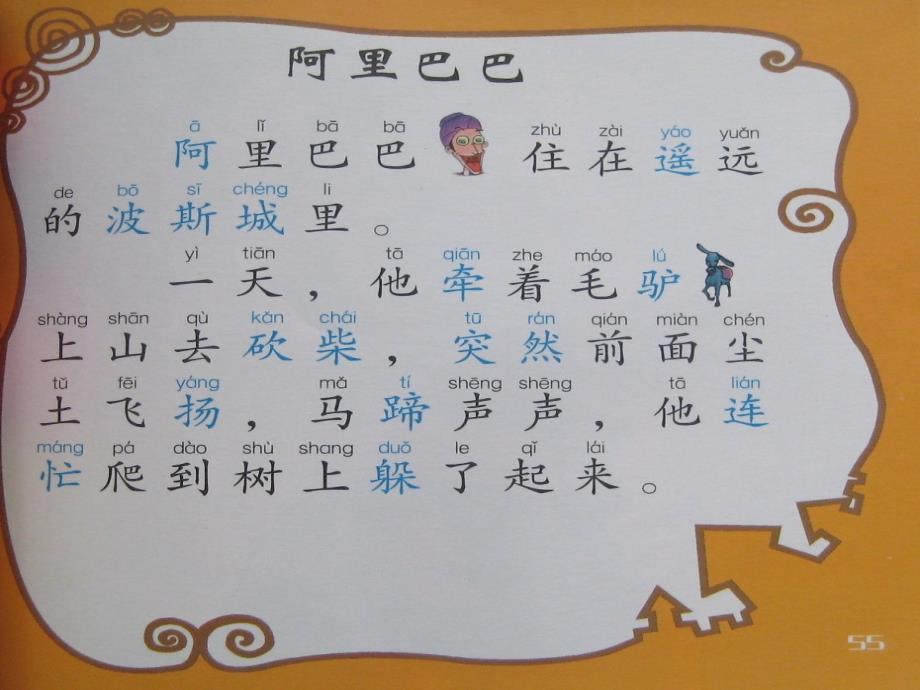 阿里巴巴
ā lǐ bā bā zhù zài yáo yuǎn
阿里巴巴住在遥远
de bō sī chéng li
的波斯城里。
yì tiān tā qiān zhe máo lú
一天，他牵着毛驴
shàng shān qù kǎn chái tū rán qián miàn chén
上山去砍柴，突然前面尘
tǔ fēi yáng mǎ tí shēng shēng tā lián
土飞扬，马蹄声声，他连
máng pá dào shù shang duǒ le qǐ lái
忙爬到树上躲了起来。
55